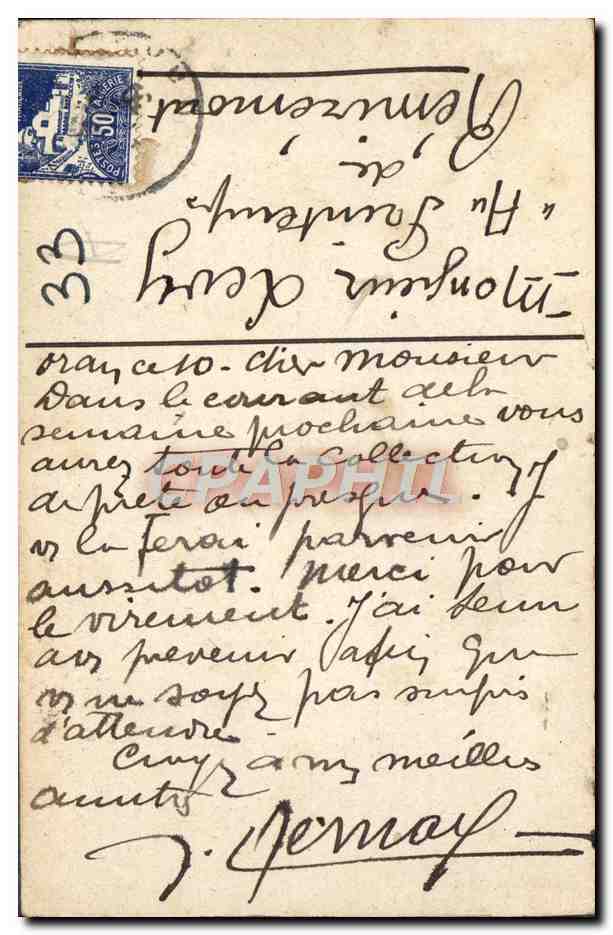 Remiremont
de
"Au Printemps"
Monsieur Levy
33
ALGERIE
POSTES 50
Oran ce 10 - Cher Monsieur
Dans le courant de la
semaine prochaine vous
aurez toute la collection
de prete ou presque. J
vs la ferai parvenir
aussitot. Merci pour
le virement. J'ai tenu
a vs prevenir afin que
vs ne soyez pas surpris
d'attendre
Croyez à mes meilles
amities
J.
CPAPHIL